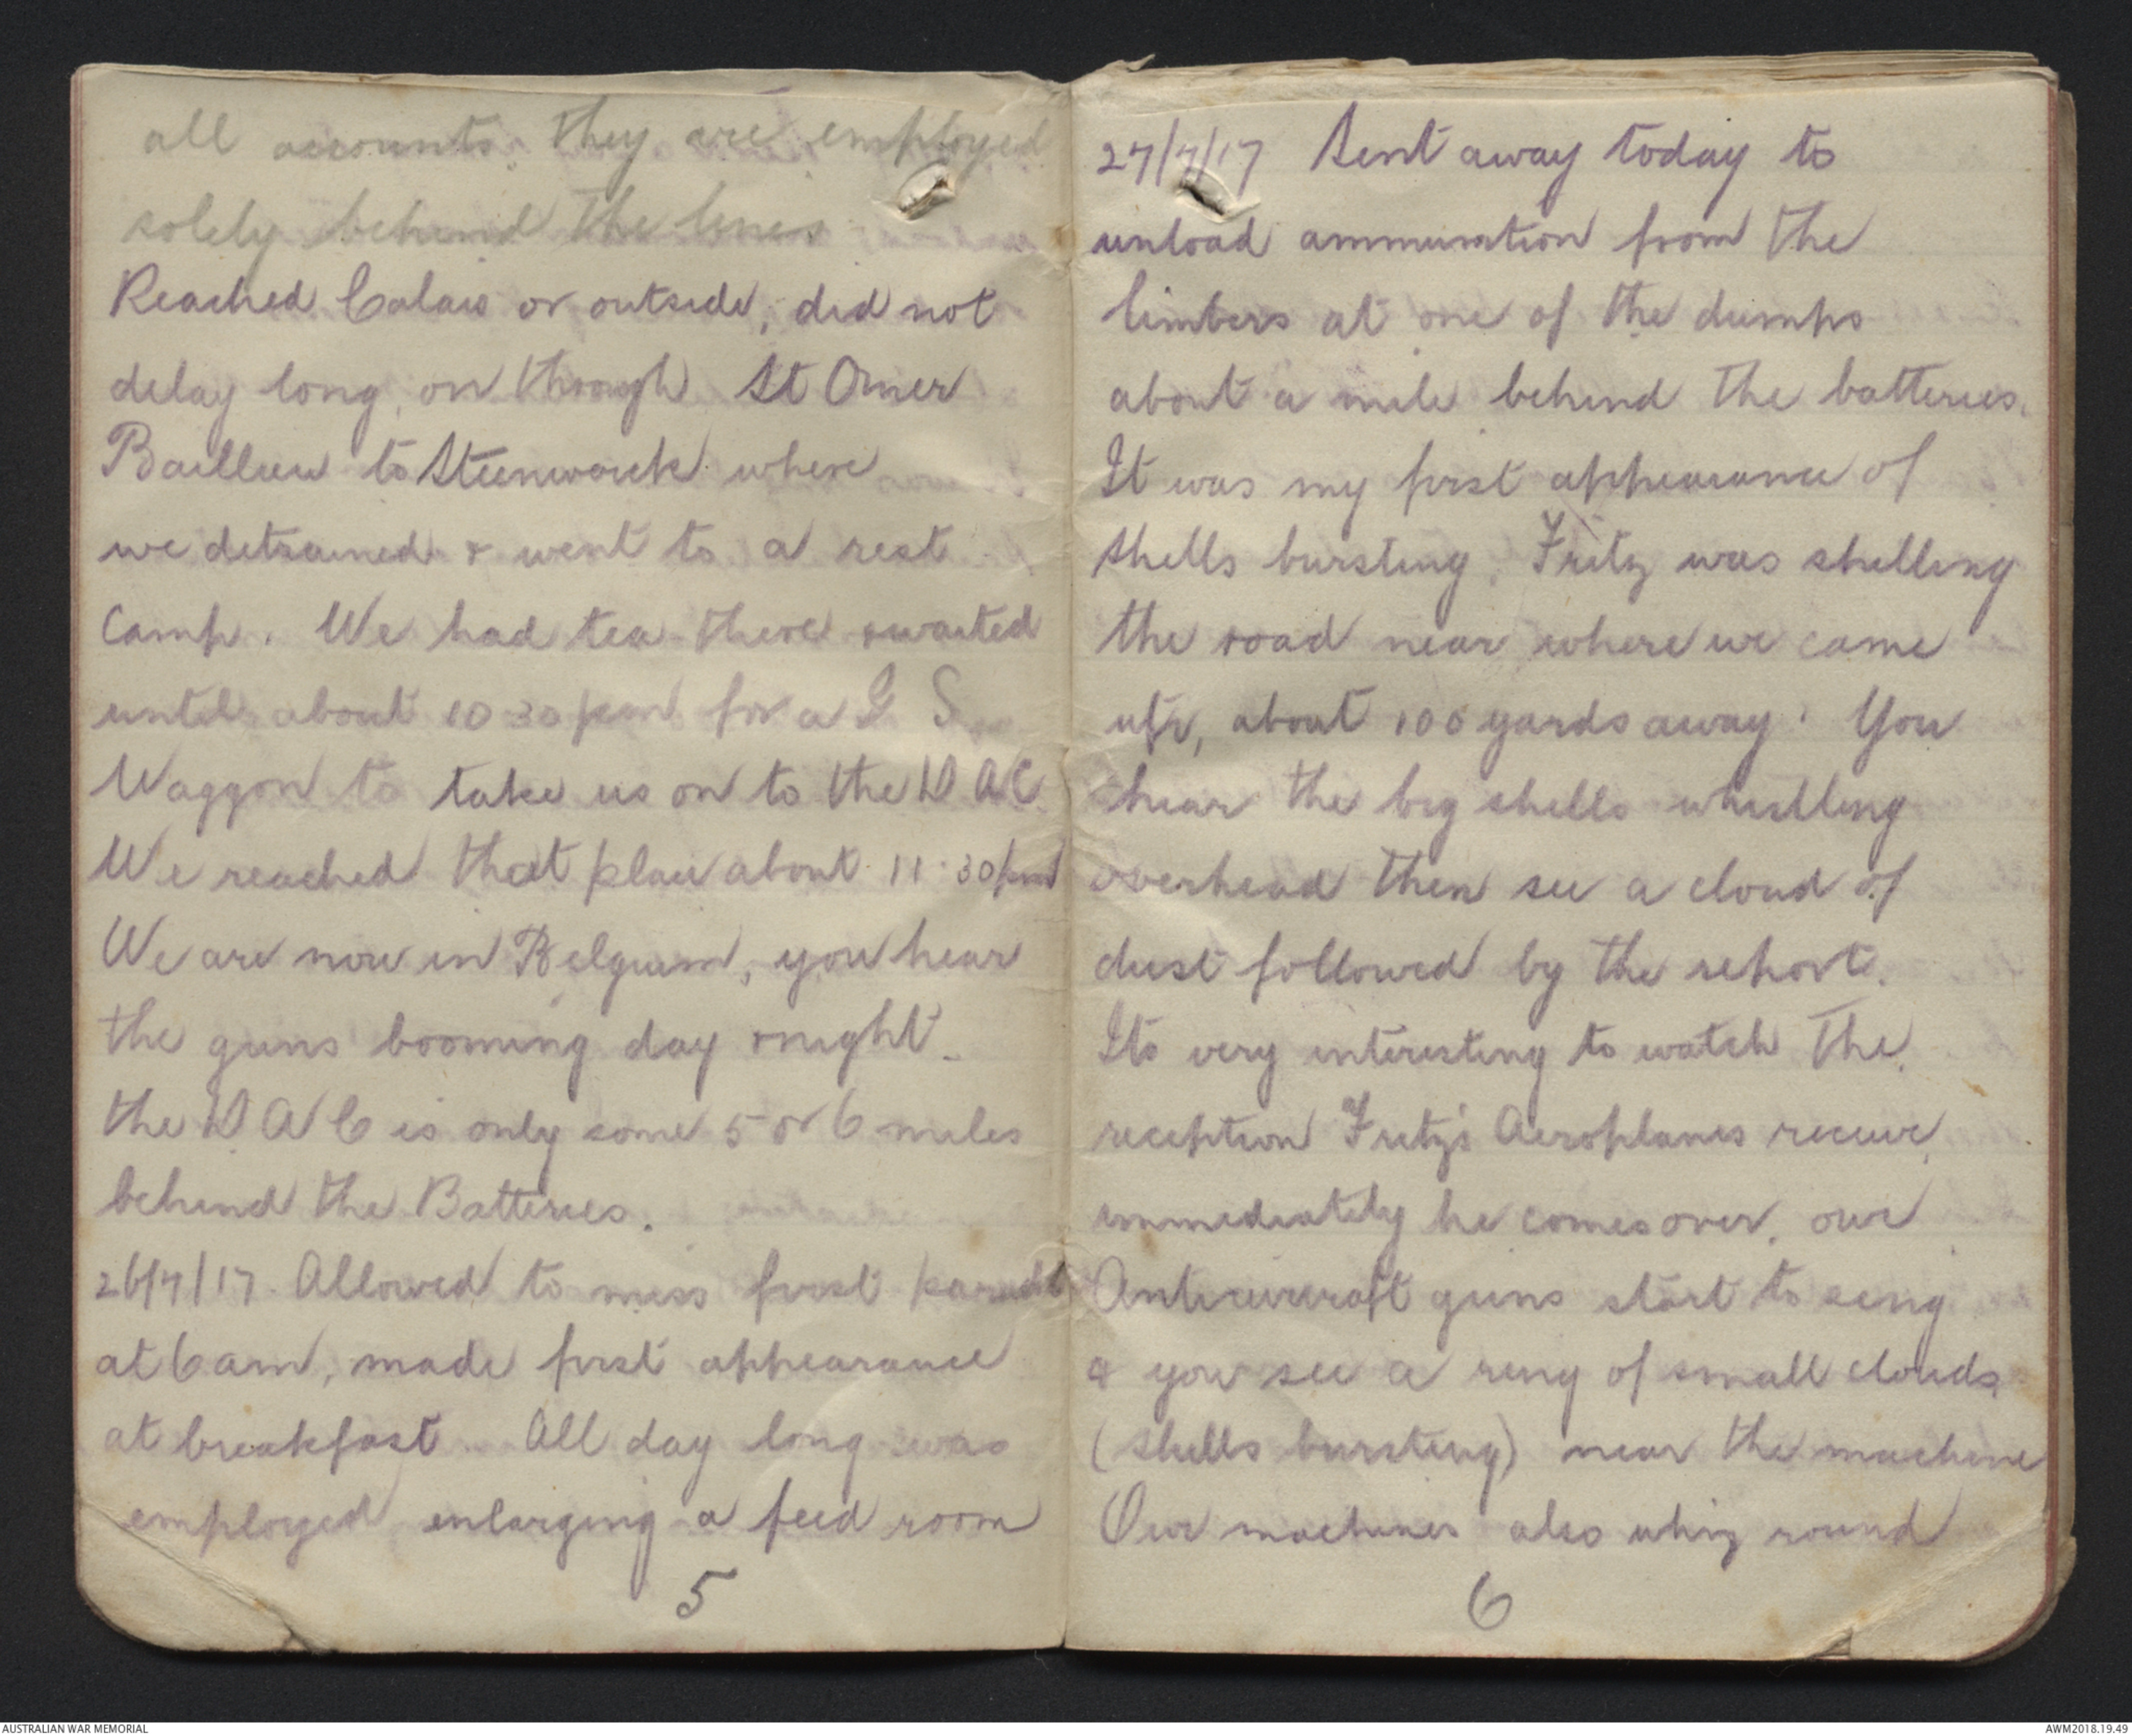 all accounts they are employed
solely behind the lines
Reached Calais or outside, did not
delay long, on through St Omer
Baillieu to Steenwarck where
we detrained & went to a rest
Camp. We had tea there & waited
until about 10 30 pm for a G S
Waggon to take us on to the D A C
We reached that place about 11.30 pm
We are now in Belgium, you hear
the guns booming day & night.
the D A C is only some 5 or 6 miles
behind the Batteries.
26/7/17. Allowed to miss first parade
at 6 am, made first appearance
at breakfast. All day long was
employed enlarging a feed room
5
27/7/17 Sent away today to
unload ammunation from the
limbers at one of the dumps
about a mile behind the batteries.
It was my first appearance of
shells bursting, Fritz was shelling
the road near where we came
up, about 100 yards away. You
hear the big shells whistling
overhead then see a cloud of
dust followed by the report.
Its very interesting to watch the
reception Fritz's Aeroplanes receive,
immediately he comes over, our
Antiaircraft guns start to sing
& you see a ring of small clouds
(shells bursting) near the machine
Our machines also whiz round
6
AUSTRALIAN WAR MEMORIAL
AWM2018.19.49